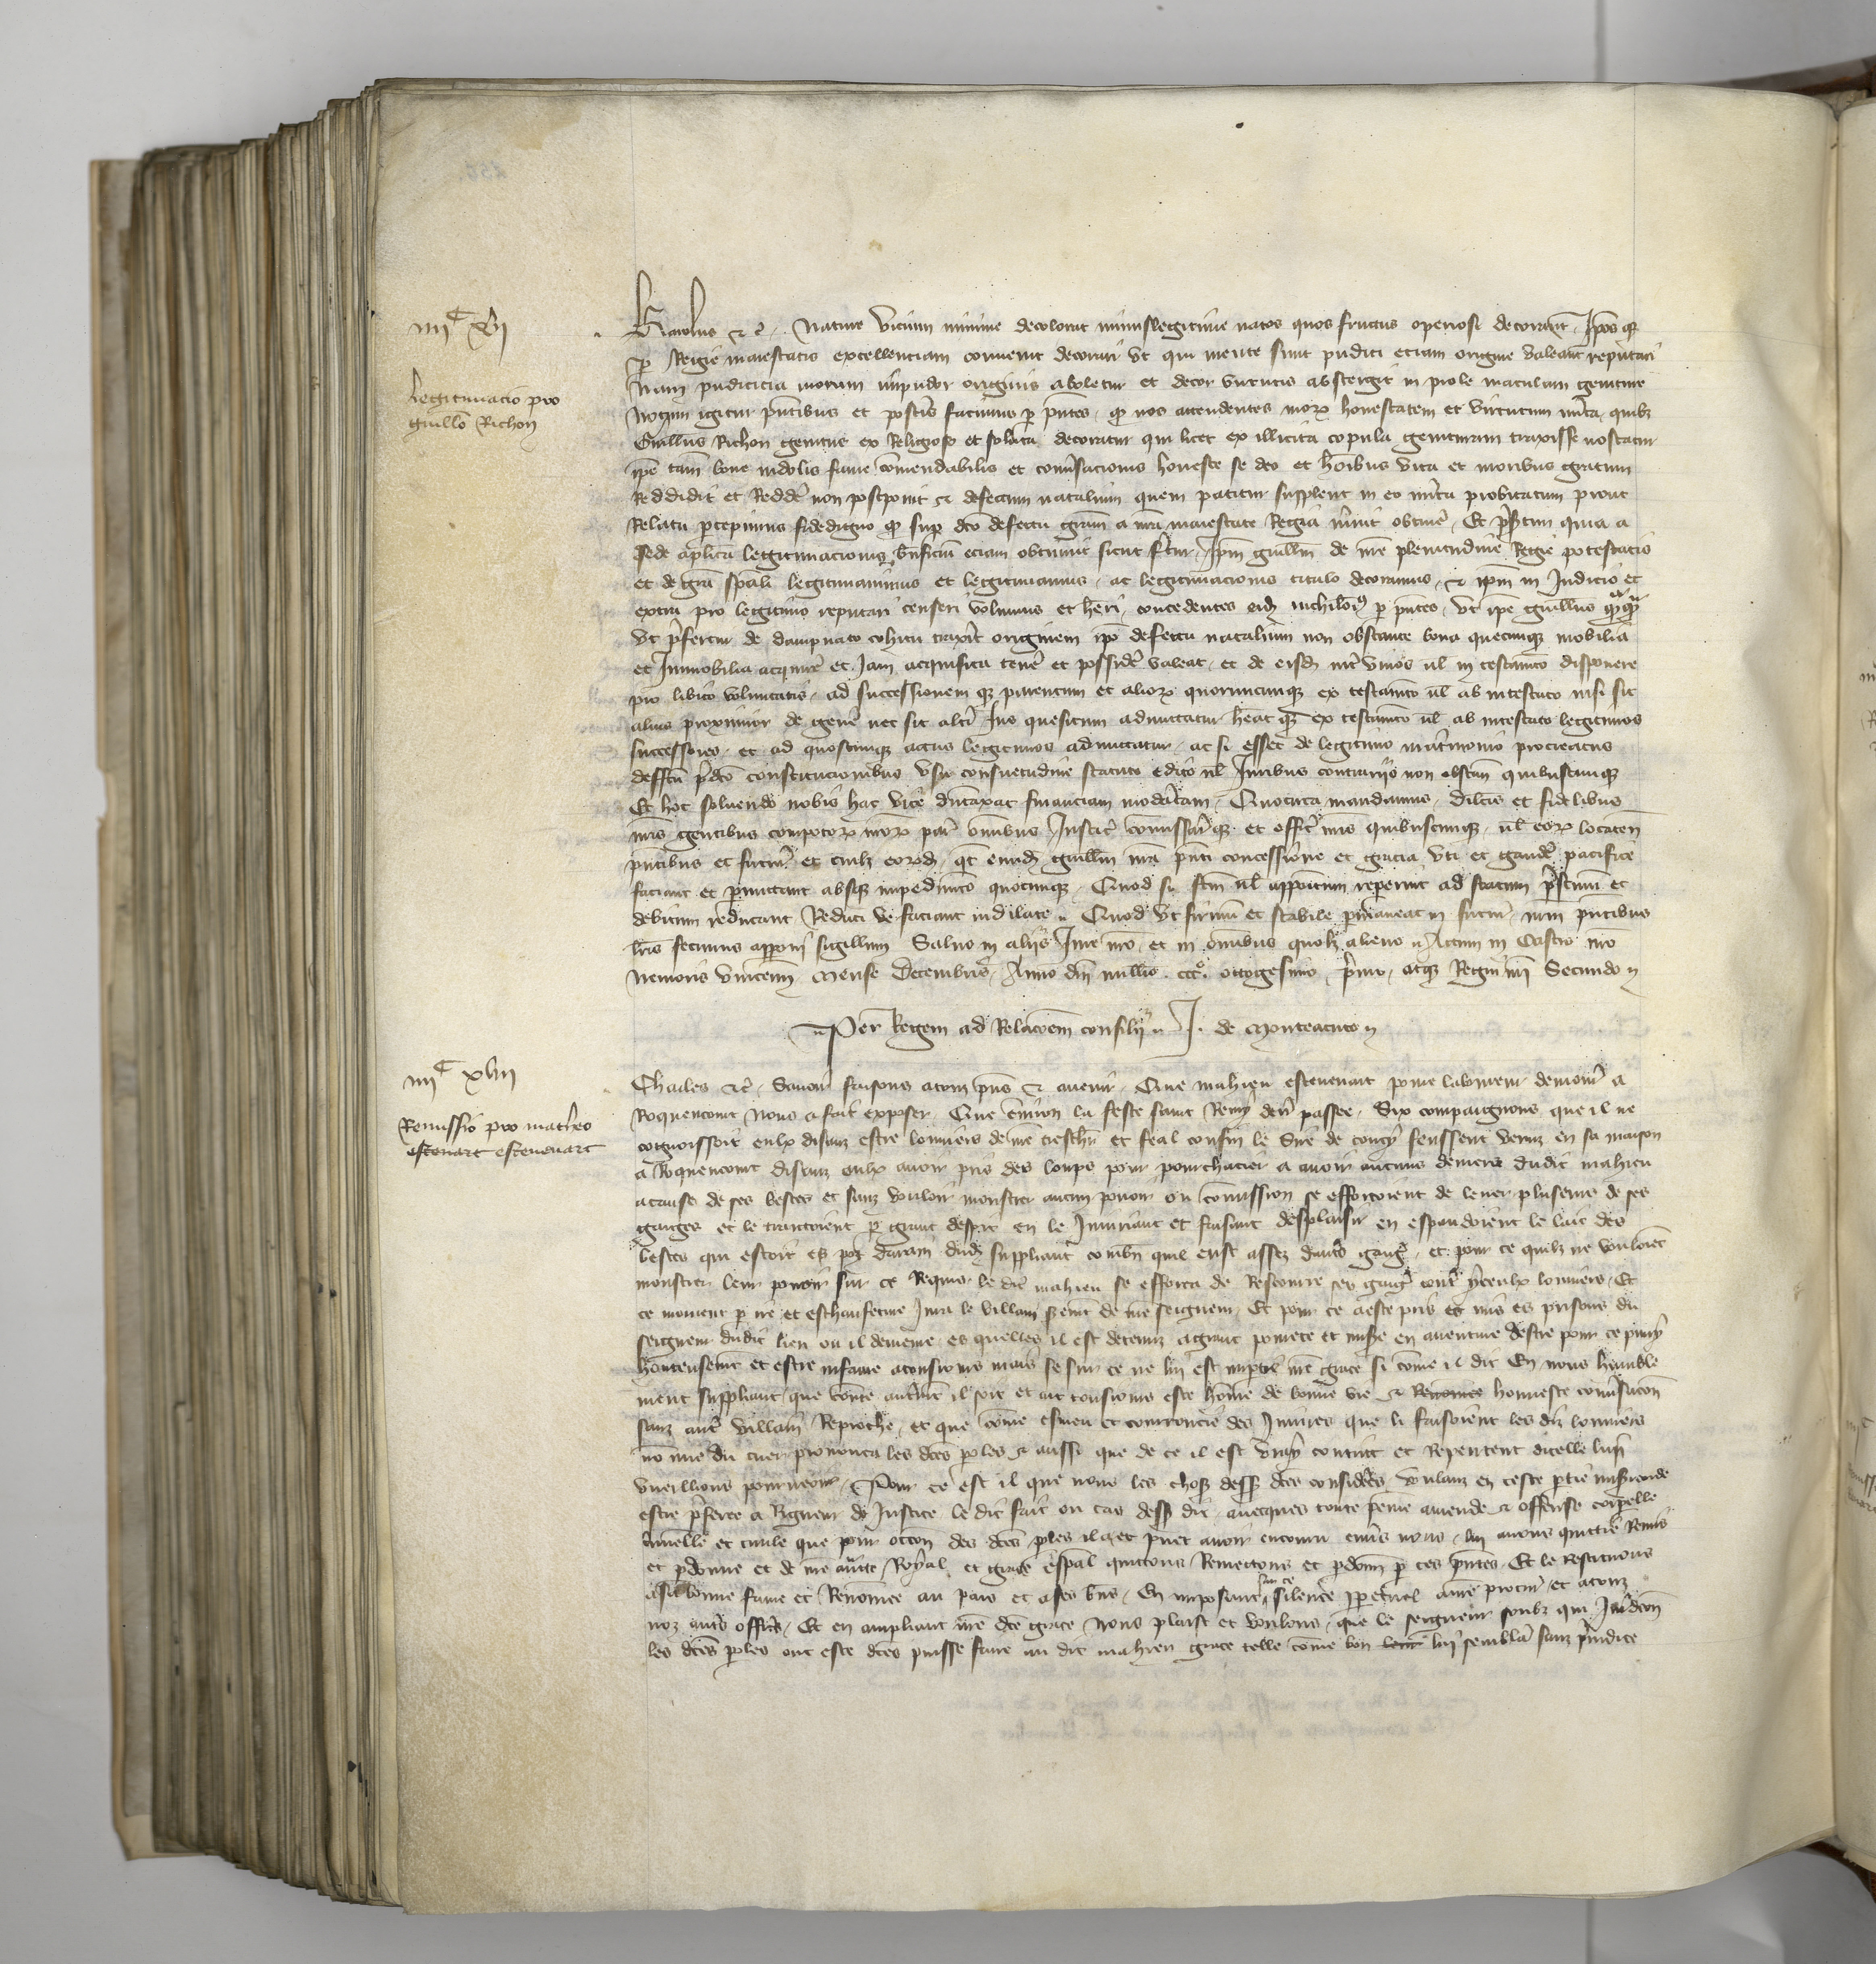 iiiiᶜ xlii
Legitimacio pro
guillo Richon
Karolus &c. Nature vicium minime decolorat minuslegitime natos quos fructus operosi decorant, Ipos qz
p Regie maiestatis excellenciam convenit decorari ut qui mente sunt pudici eciam origine valeant reputari
Nam pudicicia morum impudor originis aboletur et decor virtutis abstergit in prole maculam geniture
Notum igitur pntibus et posteris facimus p pntes, qd nos attendentes morz honestatem et virtutum mita, quibz
Guillus Richon genitus ex Religioso et soluta decoratur qui licet ex illicita copula genituram traxisse noscatur
ipe tam bone indolis fame comendabilis et conversacionis honeste se deo et hoibus vita et moribus gratum
Reddidit et Reddere non postponit & defectum natalium quem patitur supplent in eo mita probitatum prout
Relatu percepimus fidedigno qd sup dco defectu gram a nra maiestate Regia meruit obtinere, Et psertim quia a
Sede aplica legitimacionis bnficiu eciam obtinuit sicut fertur, Ipm guillm de nre plenitudine Regie potestatis
et de gra spali legitimavimus et legitimamus, ac legitimacionis titulo decoramus, & ipm in Judicio et
extra pro legitimo reputari censeri volumus et heri, concedentes eidz nichilomi9 p pntes, ut ipe guillus qzqz
ut pfertur de dampnato cohitu traxerit originem ipo defectu natalium non obstante bona quecunqz mobilia
et Inmobilia acquirere et Jam acquisita tenere et possidere valeat, et de eisdz inter vivos vel in testamento disponere
pro libito voluntatis, ad successionem qz parentum et aliorz quoruncunqz ex testamento vel ab intestato nisi sit
alius proximior de genere nec sit alteri Jus quesitum admittatur heat qz ex testamento vel ab intestato legitimos
successores et ad quoscunqz actus legitimos admittatur, ac si esset de legitimo matrimonio procreatus
deffectu pdco constitucionibus usu consuetudine statuto edicto vel Juribus contrariis non obstan quibuscunqz
Et hoc solvendo nobis hac vice duntaxat financiam moderatam, Quocirca mandamus, dilcis et fidelibus
nris gentibus compotorz nrorz par omnibus Justic comissarqz et offic nris quibuscunqz, vel eorz locaten
pntibus et futuris et cuilz eorzdz qt eundz guillm nra pnti concessione et gracia uti et gaudere pacifice
faciant et pmittant absqz impedimento quocunqz, Quod si fcm vel appositum repperint ad statum pstinu et
debitum reducant Reduci ve faciant indilate, Quod ut firmu et stabile pmaneat in futur, nrm pntibus
lris fecimus apponi sigillum Salvo in aliis Jure nro et in omibus quolz alieno, Actum in Castro nro
nemoris vincenn mense Decembris, Anno dni millio ccc°. octogesimo primo, atqz Regni nri Secundo
Per Regem ad Relacoem consilii, J. de Monteacuto
iiiiᶜ xliii
Remissio pro matheo
estevart estevenart
Charles &c, Savoir faisons atouz pns & avenir, Que mahieu estevenart povre laboureur demour a
Roquencourt Nous a fait exposer Que environ la feste saint Remy derr passee, Six compaignons que il ne
cognoissoit eulx disanz estre louviers de nre treschr et feal cousin le Sire de coucy feussent venuz en sa maison
a Roquencourt disanz eulx avoir pris des loups pour pourchacier a avoir aucuns deniers dudit mahieu
acause de ses bestes et sanz vouloir monstrer aucun povoir ou comission se efforcoient de lever pluseurs de ses
gaiges et le traictoient p grant despit en le Injuriant et faisant desplaisir en espandoient le lait des
bestes qui estoit es poz darain dudz suppliant combn quil eust assez dautres gaiges, et pour ce quilz ne vouloiet
monstrer leur povoir sur ce Requis le dit mahieu se efforca de Rescourre ses gaiges contre yceulx louviers, Et
ce mouvent p ire et eschaufeture Jura le villain serment de nre seigneur, Et pour ce aeste pris et mis es prisons du
seigneur dudit lieu ou il demeure es quelles il est detenuz agrant povrete et misere en aventure destre pour ce puny
honteusemt et estre infame atousjours mais se sur ce ne lui est imparti nre grace si come il dit En nous humble
ment suppliant que come autremt il soit et ait tousjours este home de bonne vie & Renomee honneste conversacon
sanz autre villain Reproche, et que come esmeu et courroucie des Injures que li faisoient les diz louviers
no mie du cuer prononca les dces poles & aussi que de ce il est vray contrict et Repentent dicelle luy
vueillions pourveoir, Pour ce est il que nous les choses dess dces considerees, voulanz en ceste ptie misericorde
estre pferee a Rigueur de Justice le dit fait ou cas dess dit, avecques toute peine amende & offense corpelle
criminelle et civile que pour occon des dces poles il a et puet avoir encouru envers nous, lui avons quitte Remis
et pdonne et de nre auctte Royal, et grace espal quittons Remettons et pdonn p ces pntes, Et le Restituons
asa bonne fame et Renomee au pais et ases bns, En imposant sur ce silence ppetuel anre procur et atouz
noz autres offic, Et en ampliant nre dce grace Nous plaist et voulons, que le seigneur soubz qui Juridicon
les dces poles ont este dces puisse faire au dit mahieu grace telle come bon leur luy semblera sanz piudice